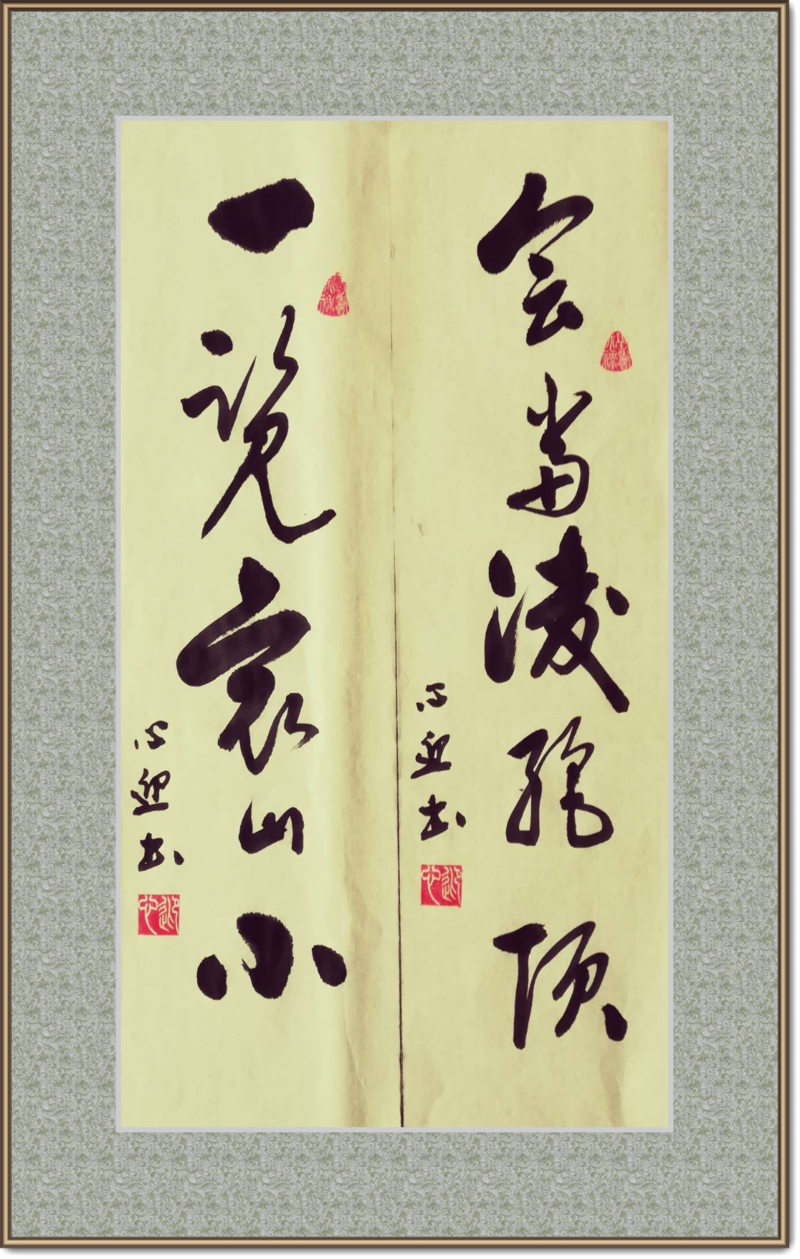 会當凌绝顶
心迎书
一览众山小
心迎书